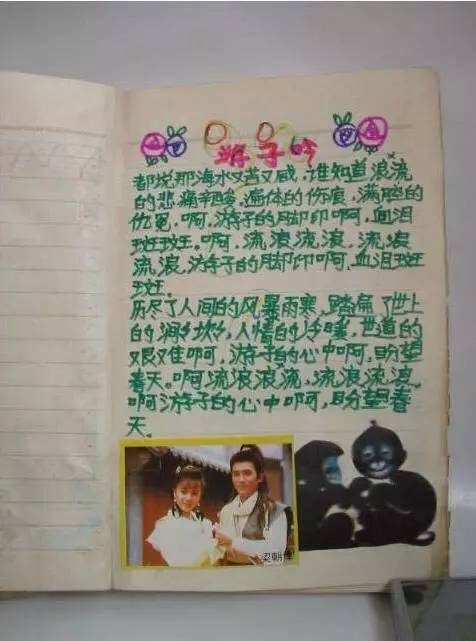 游子吟
都说那海水又苦又咸,谁知道浪流
的悲痛辛酸,遍体的伤痕,满腔的
仇冤,啊,游子的脚印啊,血泪
斑斑。啊,流浪流浪,流浪
流浪,游子的脚印啊,血泪斑
斑。
历尽了人间的风暴雨寒,踏遍了世上
的沟々坎々,人情的冷暖,世道的
艰难啊,游子的心中啊,盼望
春天。啊流浪浪流,流浪流浪,
啊游子的心中啊,盼望春
天。
梁朝伟